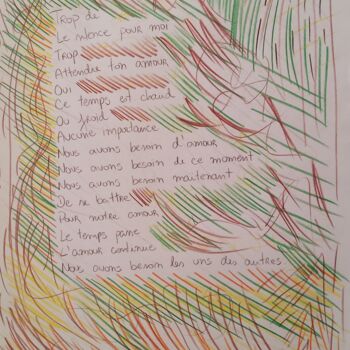 Trop de
Le silence pour moi
Trop
Attendre ton amour
Oui
Ce temps est chaud
Ou froid
Aucune importance
Nous avons besoin d'amour
Nous avons besoin de ce moment
Nous avons besoin maintenant
De se battre
Pour notre amour
Le temps passe
L'amour continue
Nous avons besoin les uns des autres